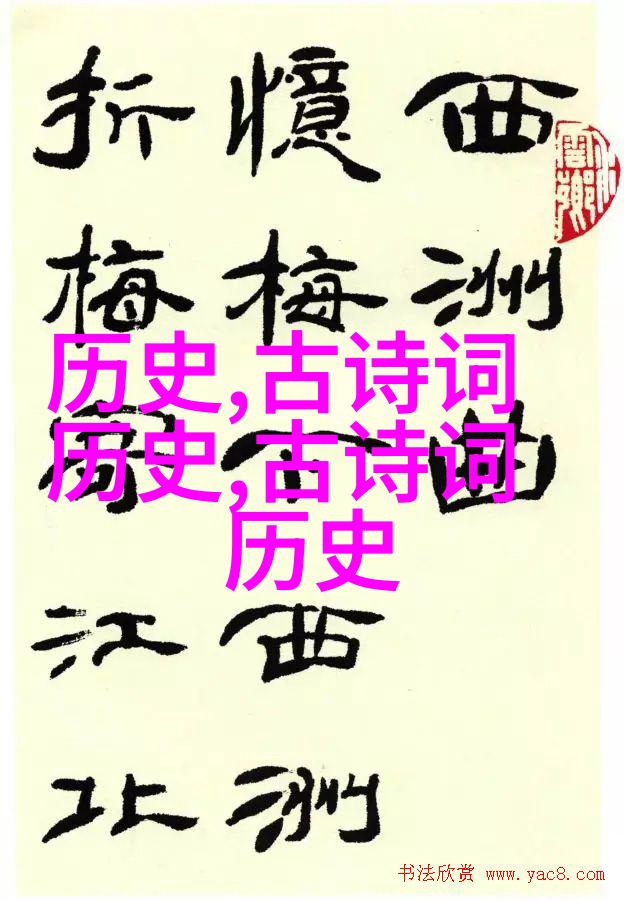 西洲曲
憶梅下西洲
折梅寄江北
历史,古诗词
历史,古诗词
历史
书法欣赏 www.yac8.com